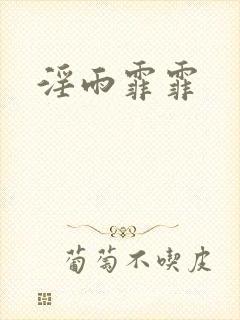 淫雨霏霏
葡萄不喫皮